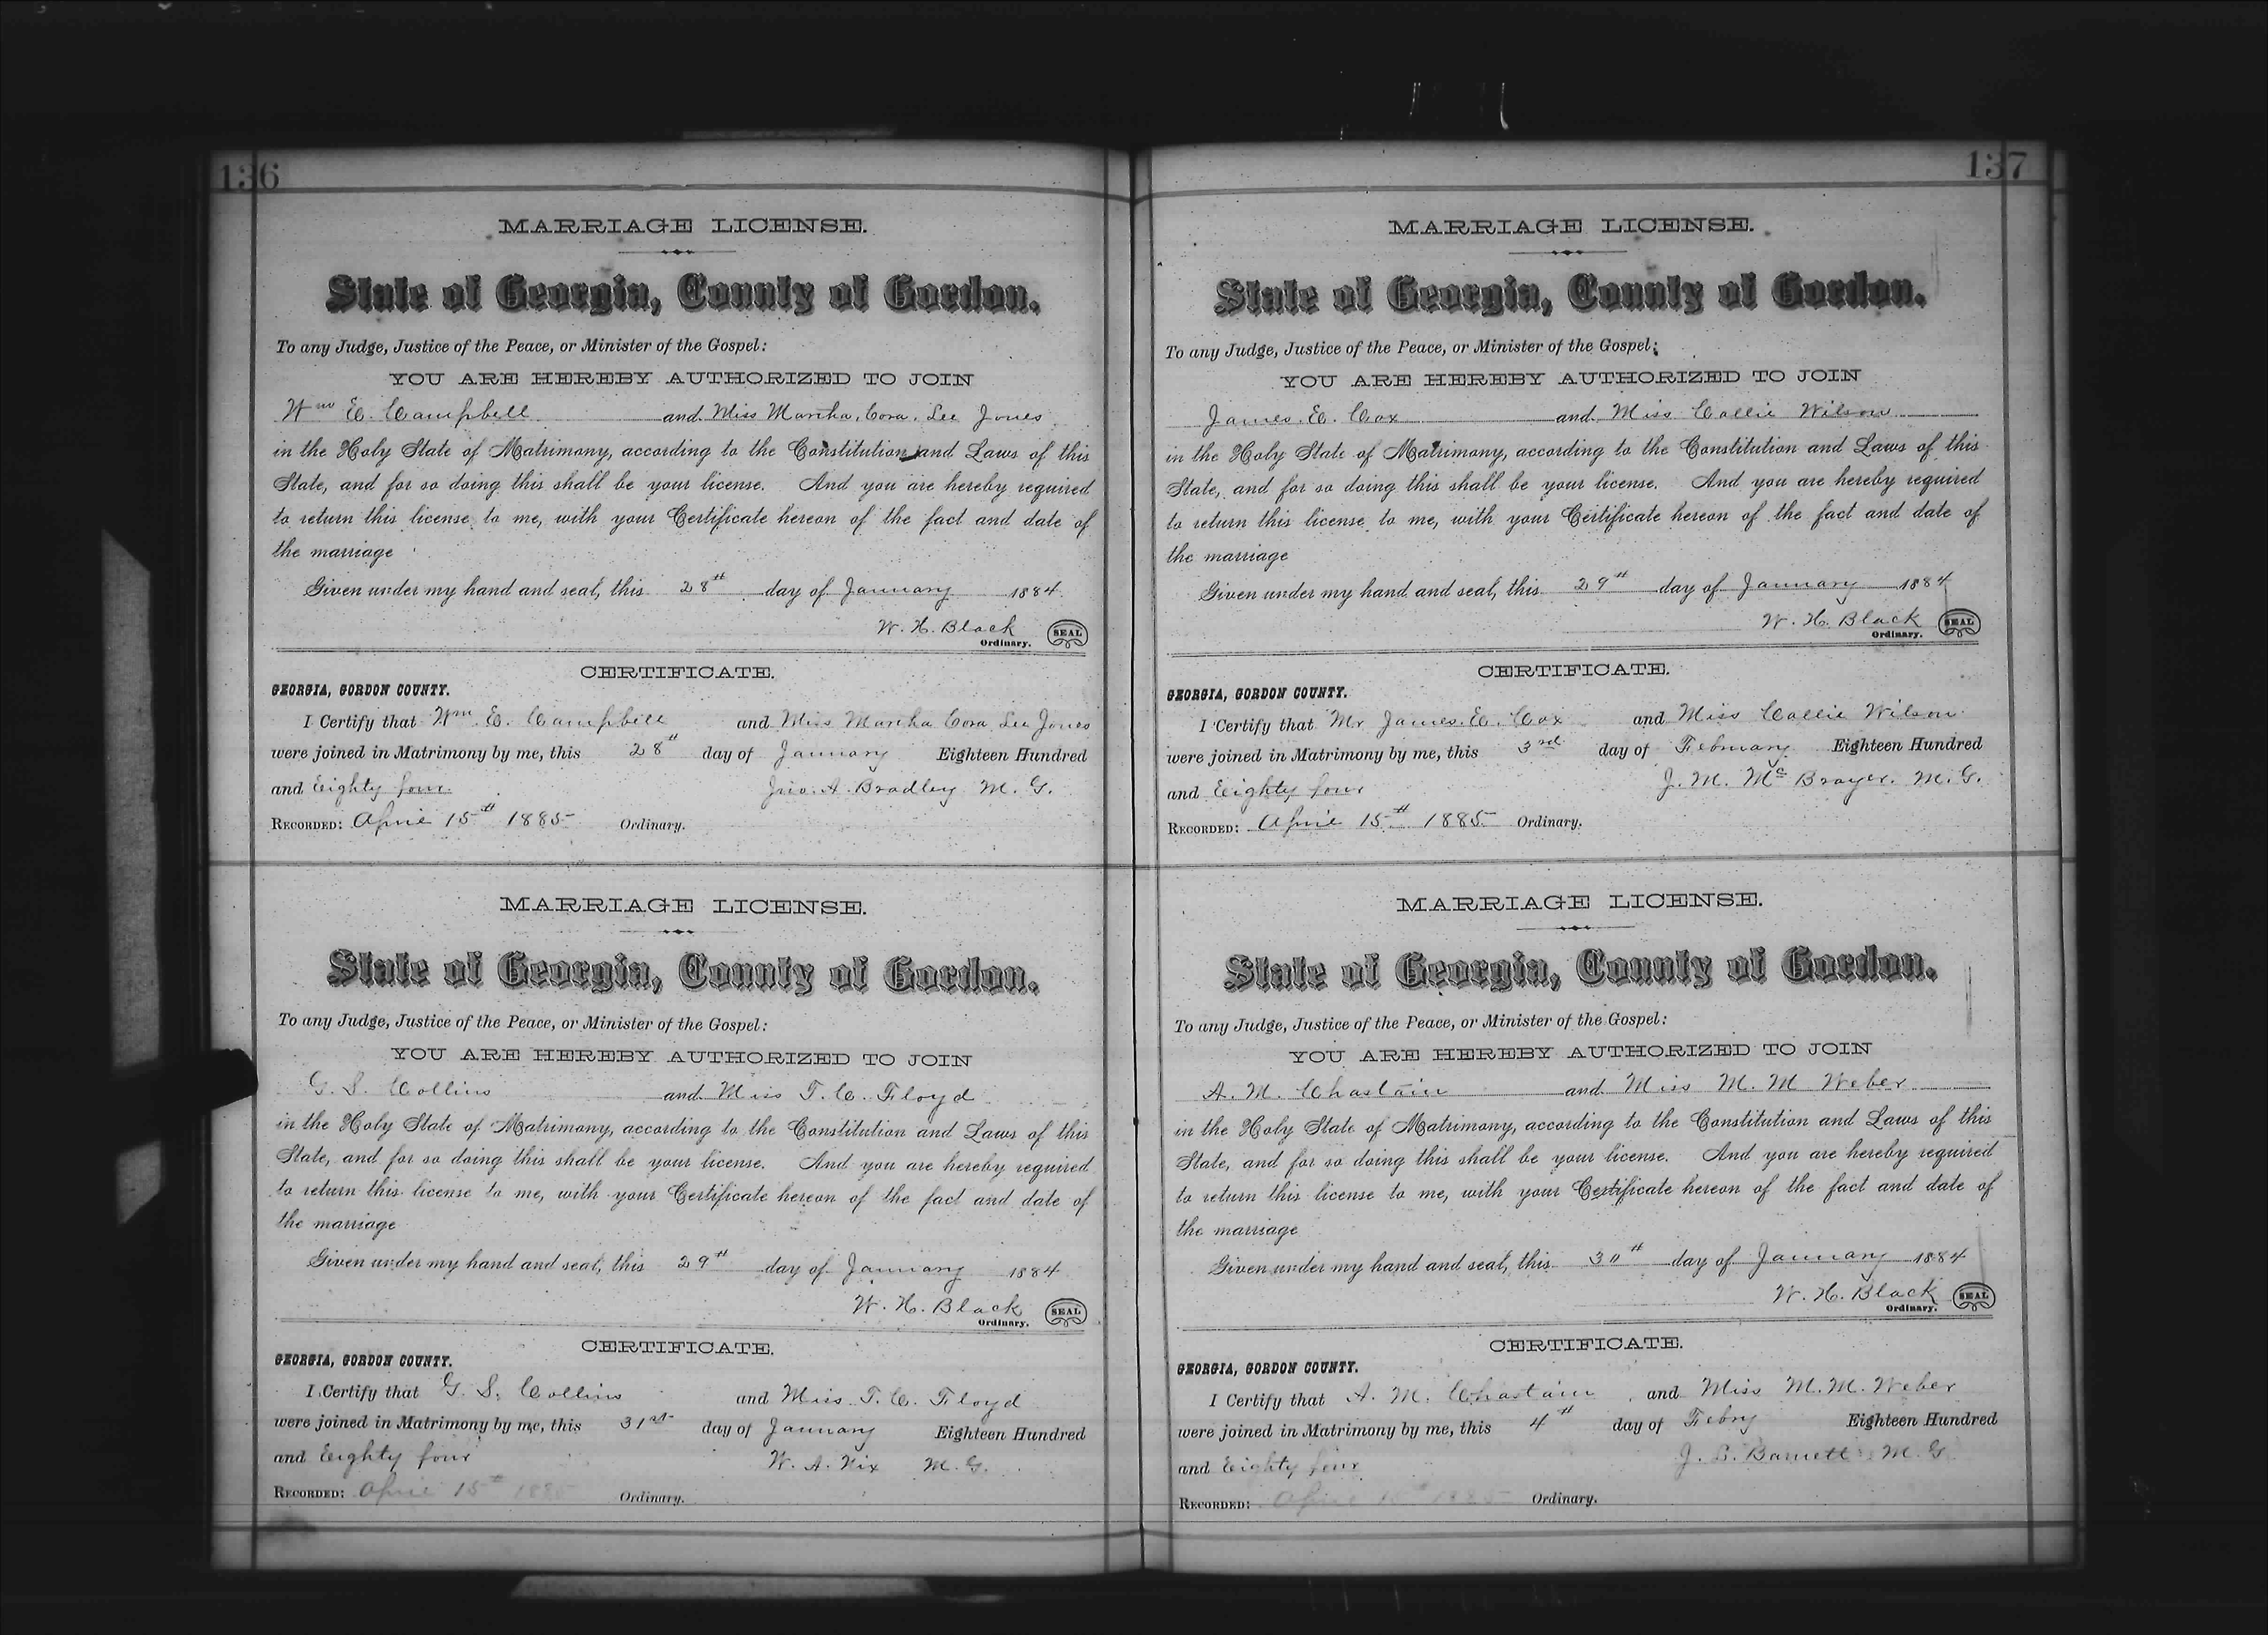 136
MARRIAGE LICENSE.
State of Georgia, County of Gordon.
To any Judge, Justice of the Peace, or Minister of the Gospel:
YOU ARE HEREBY AUTHORIZED TO JOIN
Wm E. Campbell and Miss Martha, Cora, Lee Jones
in the Holy State of Matrimony, according to the Constitution and Laws of this
State, and for so doing this shall be your license. And you are hereby required
to return this license to me, with your Certificate hereon of the fact and date of
the marriage
Given under my hand and seal, this 28th day of January 1884.
W. H. Black SEAL
Ordinary.
CERTIFICATE.
GEORGIA, GORDON COUNTY.
I Certify that Wm. E. Campbell and Miss Martha Cora Lee Jones
were joined in Matrimony by me, this 28th day of January Eighteen Hundred
and Eighty four. Jno. A. Bradley M. G.
RECORDED: April 15th 1885 Ordinary.
MARRIAGE LICENSE.
State of Georgia, County of Gordon.
To any Judge, Justice of the Peace, or Minister of the Gospel:
YOU ARE HEREBY AUTHORIZED TO JOIN
G. S. Collins and Miss T. C. Floyd
in the Holy State of Matrimony, according to the Constitution and Laws of this
State, and for so doing this shall be your license. And you are hereby required
to return this license to me, with your Certificate hereon of the fact and date of
the marriage
Given under my hand and seal, this 29th day of January 1884
W. H. Black SEAL
Ordinary.
CERTIFICATE.
GEORGIA, GORDON COUNTY.
I Certify that G. S. Collins and Miss T. C. Floyd
were joined in Matrimony by me, this 31st day of January Eighteen Hundred
and Eighty four W. A. Nix M. G.
RECORDED: April 15th 1885 Ordinary.
137
MARRIAGE LICENSE.
State of Georgia, County of Gordon.
To any Judge, Justice of the Peace, or Minister of the Gospel:
YOU ARE HEREBY AUTHORIZED TO JOIN
James. E. Cox and Miss Callie Wilson
in the Holy State of Matrimony, according to the Constitution and Laws of this
State, and for so doing this shall be your license. And you are hereby required
to return this license to me, with your Certificate hereon of the fact and date of
the marriage
Given under my hand and seal, this 29th day of January 1884
W. H. Black SEAL
Ordinary.
CERTIFICATE.
GEORGIA, GORDON COUNTY.
I Certify that Mr James. E. Cox and Miss Callie Wilson
were joined in Matrimony by me, this 3rd day of February Eighteen Hundred
and Eighty four J. M. McBrayer. M. G.
RECORDED: April 15th 1885 Ordinary.
MARRIAGE LICENSE.
State of Georgia, County of Gordon.
To any Judge, Justice of the Peace, or Minister of the Gospel:
YOU ARE HEREBY AUTHORIZED TO JOIN
A. M. Chastain and Miss M. M Weber
in the Holy State of Matrimony, according to the Constitution and Laws of this
State, and for so doing this shall be your license. And you are hereby required
to return this license to me, with your Certificate hereon of the fact and date of
the marriage
Given under my hand and seal, this 30th day of January 1884
W. H. Black SEAL
Ordinary.
CERTIFICATE.
GEORGIA, GORDON COUNTY.
I Certify that A. M. Chastain and Miss M. M. Weber
were joined in Matrimony by me, this 4th day of Febry Eighteen Hundred
and Eighty four Barnett M. G.
RECORDED: April 15th 1885 Ordinary.